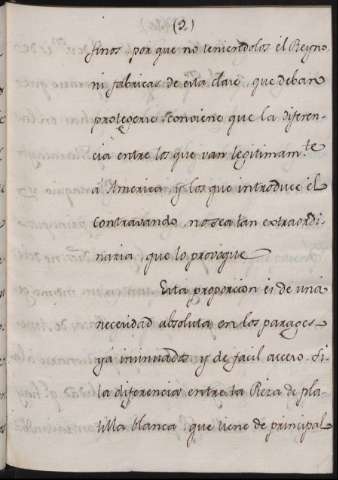 (2)
finos por que no teniendolos el Reyno
ni fabricas de esta clase, que deban
protegerse conviene que la diferen-
cia entre los que van legitimam.te
a America y los que introduce el
contravando no sea tan extraordi-
naria, que lo provoque
Esta proporcion es de una
necesidad absoluta en los parages
ya insinuados y de facil acceso. Si
la diferencia entre la Pieza de pla-
tilla blanca que tiene de principal